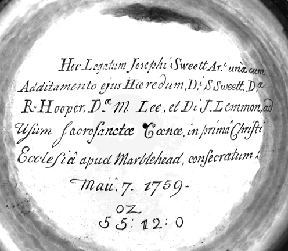 Hoc Legatum Josephi Sweett Ar.ʳ unà cum
Additamento ejus Hæredum, Dⁱ. S. Sweett, Dᵃ
R. Hooper, Dᵃ. M. Lee, et Dⁱ. J. Lemmon, ad
Usum sacrosanctæ Cœnæ, in primâ Christi
Ecclesiâ apud Marblehead, consecratum
Maii. 7. 1759.
OZ
55: 12: 0